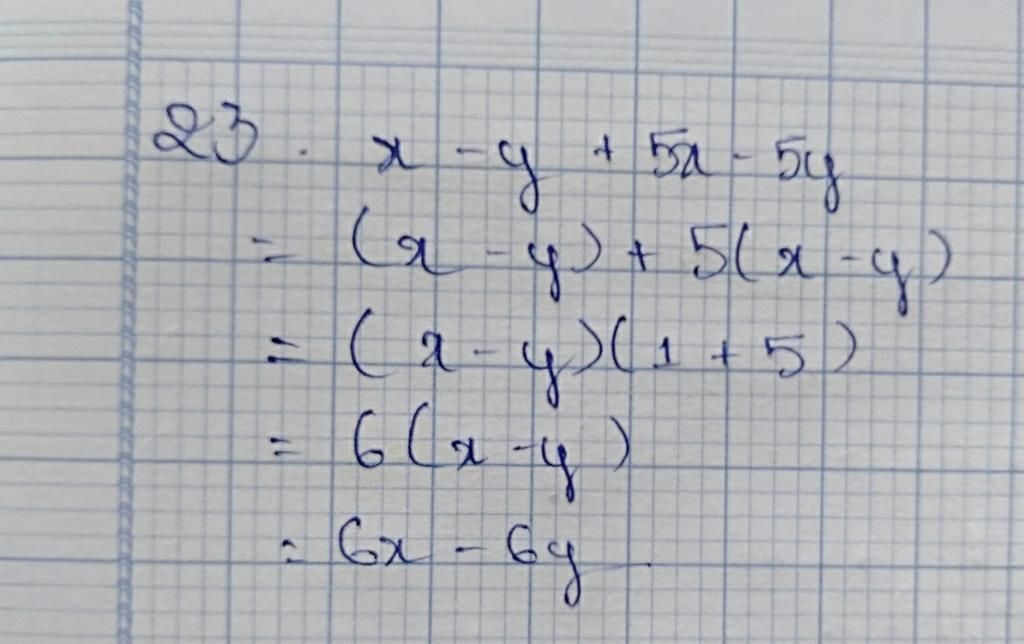 23. x - y + 5x - 5y
= (x - y) + 5(x - y)
= (x - y)(1 + 5)
= 6(x - y)
= 6x - 6y